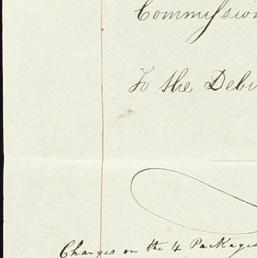 Commission
To the Debi
Charges on the 4 Packages